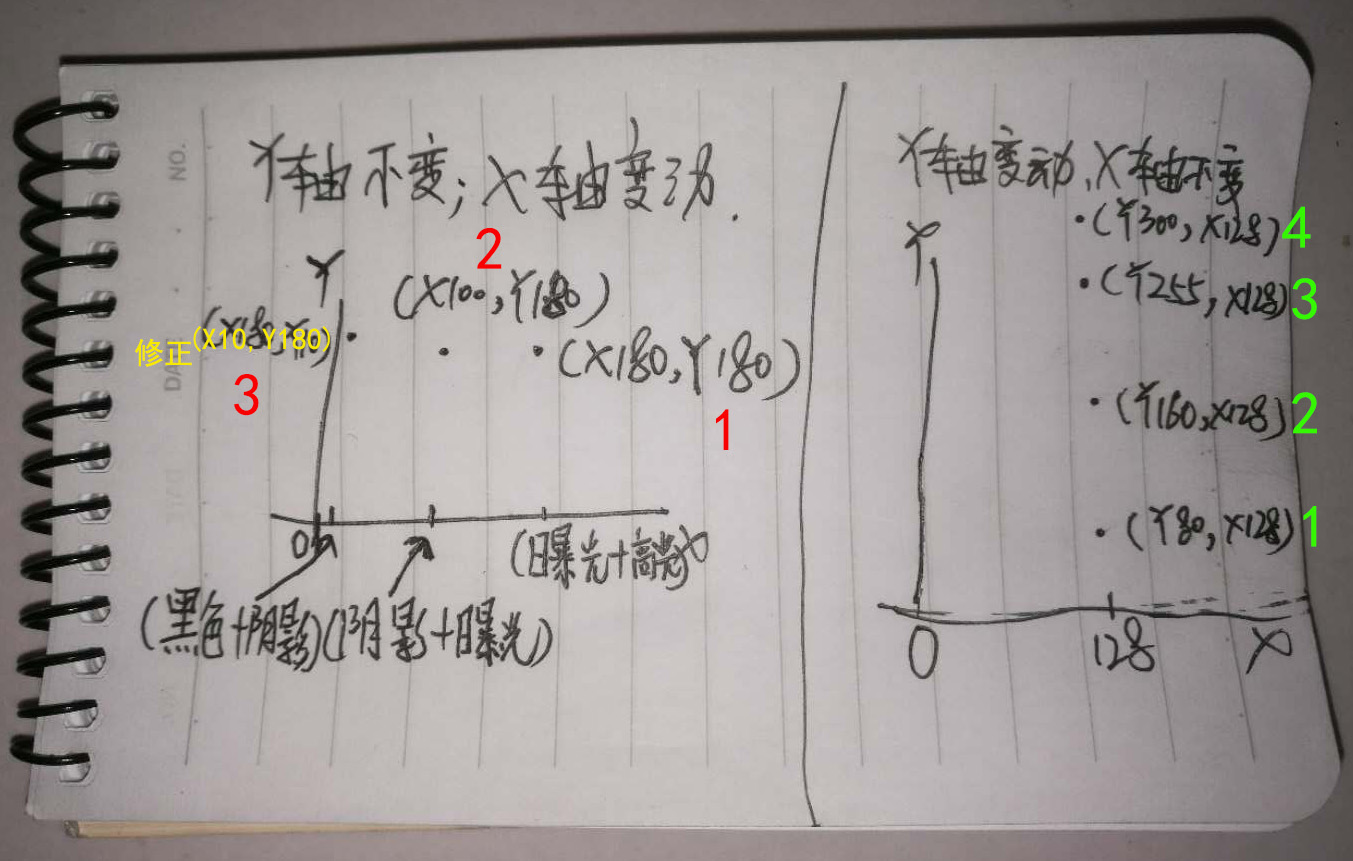 NO.
Y轴不变；X轴变动.
2
Y
(X100,Y180)
修正(X10,Y180)
3
(X180,Y180)
1
0
(曝光+高光)X
(黑色+阴影)(阴影+曝光)
Y轴变动、X轴不变
(Y300,X128)4
Y
(Y255,X128)3
(Y160,X128)2
(Y80,X128)1
0
128
X